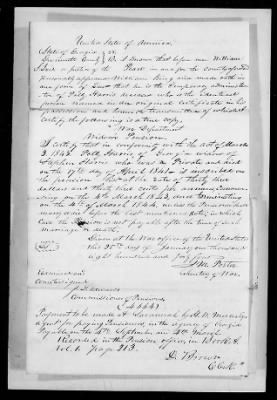 United States of America
State of Georgia
County Be it known that before me William
a Justice of the Peace in and for the county aforesaid
personally appeared William King and made oath in
due form of Law that he is the temporary administra
tor of Patty Harris deceased who is the identical
person named in an original certificate in his
possession and
certify the following is a true copy
War Department
Widows Pension
I certify that in conformity with the act of
March 3. 1843 Patty Harris widow of
Stephen Harris who was a Private and died
on the 17th day of April 1841 is inscribed on
the pension at the rate of thirty three
dollars and thirty three cents per annum Commen
cing on the 4th March 1843 and terminating
on the 4th of March 1844, unless the Pensioner
marry or die before the last mentioned date in which
case the Pension is not payable after the time of such
marriage or death.
Given at the War office of the United States
this 20th day of January one thousand
eight hundred and forty four
J M Porter
Secretary of War
Examined and
Countersigned
J L Edwards
Commissioner of Pensions
Payment to be made at Savannah by
agent for paying Pensioners in the agency of Georgia
Payable on the 4th September and 4th March
Recorded in the Pension office in Book
Vol. 1 Page 213
D Brown
Clerk